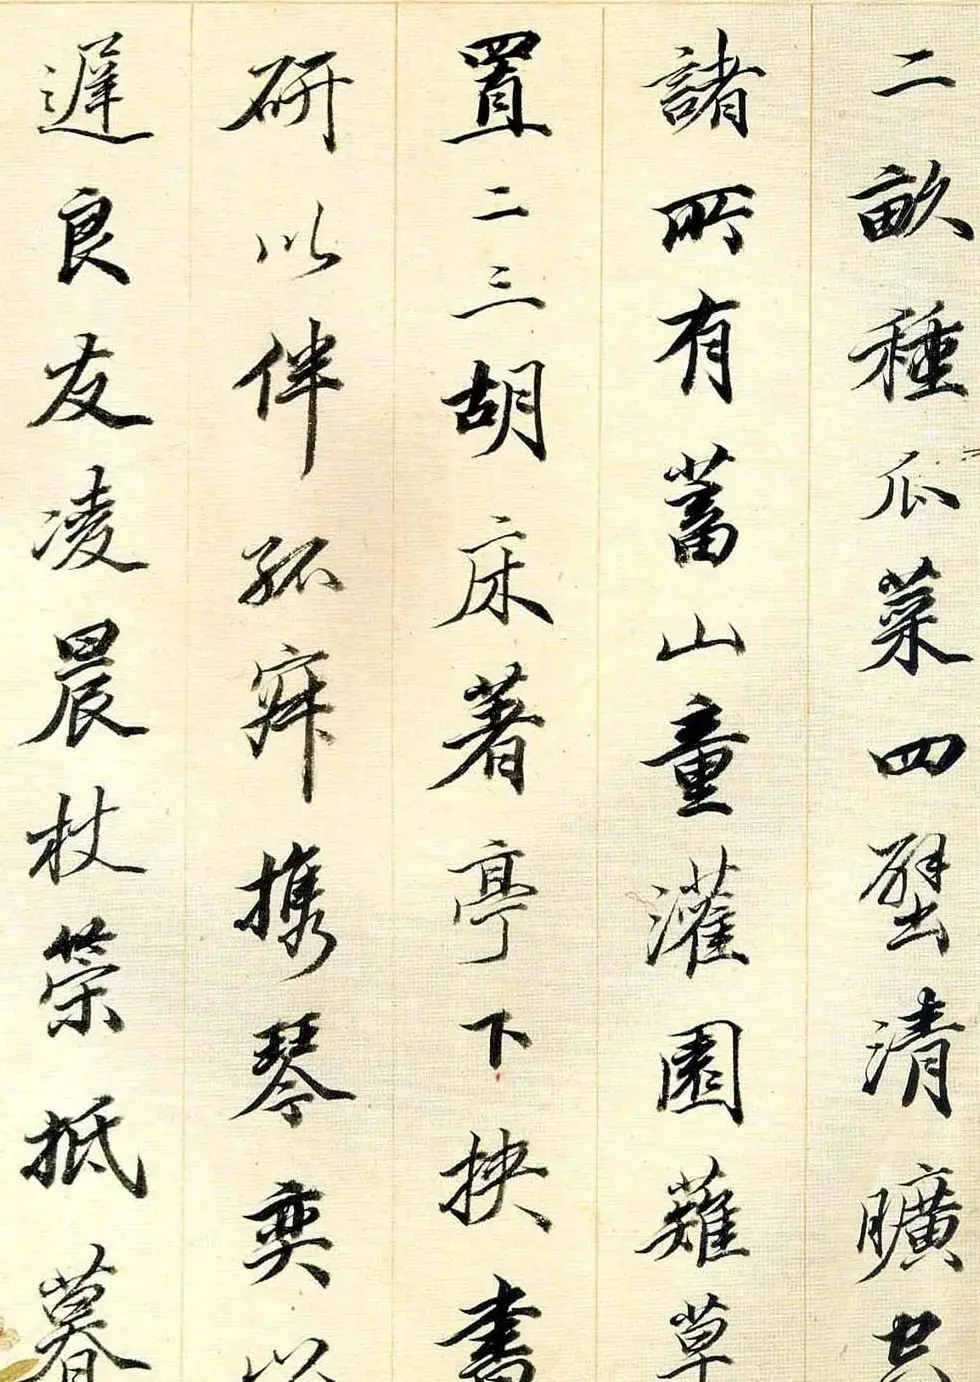 二畝種瓜菜四壁清曠空
諸所有蓄山童灌園薙草
置二三胡床著亭下挾書
研以伴孤寂攜琴奕以
遲良友凌晨杖策抵暮